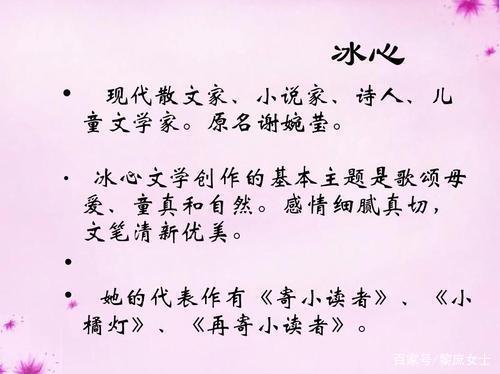 冰心
• 现代散文家、小说家、诗人、儿
童文学家。原名谢婉莹。
• 冰心文学创作的基本主题是歌颂母
爱、童真和自然。感情细腻真切，
文笔清新优美。
•
• 她的代表作有《寄小读者》、《小
橘灯》、《再寄小读者》。
百家号/黎庶女士